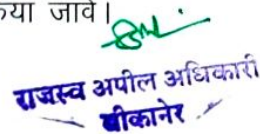 जावे।
राजस्व अपील अधिकारी
बीकानेर